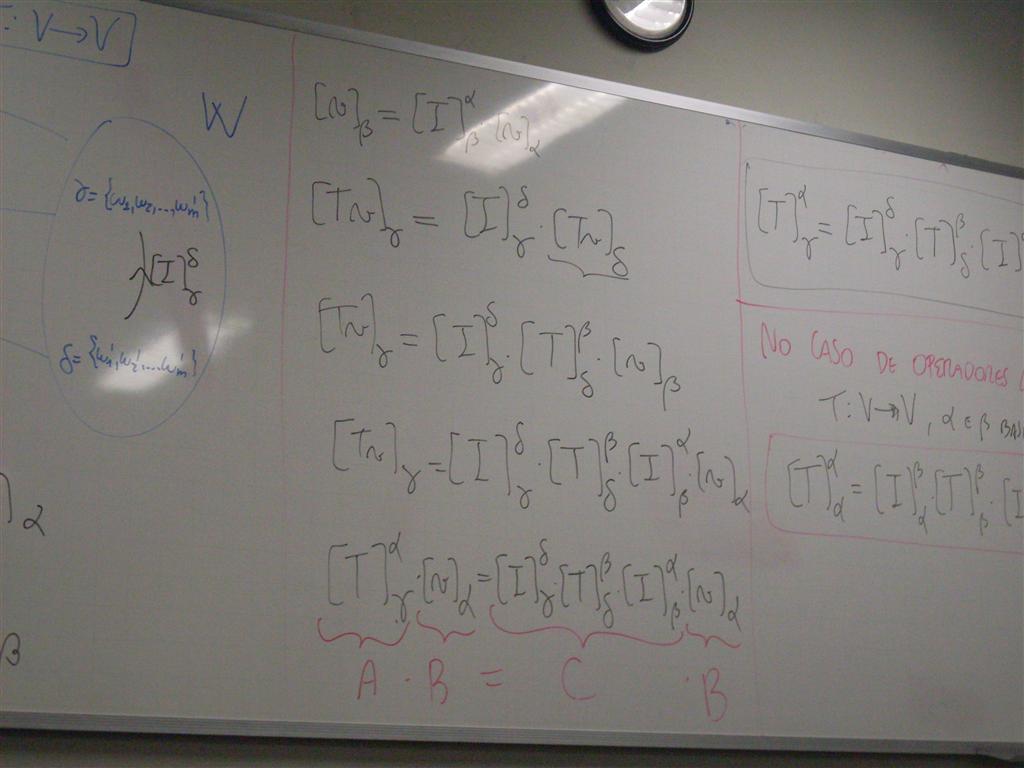 : V→V
W
γ={w₁,w₂,...,wₘ}
[I]ᵟᵧ
δ={w₁',w₂',...,wₘ'}
]α
β
[v]_β = [I]^α_β [v]_α
[Tv]_γ = [I]^δ_γ · [Tv]_δ
[Tv]_γ = [I]^δ_γ · [T]^β_δ · [v]_β
[Tv]_γ = [I]^δ_γ · [T]^β_δ · [I]^α_β · [v]_α
[T]^α_γ · [v]_α = [I]^δ_γ · [T]^β_δ · [I]^α_β · [v]_α
A · B = C · B
[T]^α_γ = [I]^δ_γ · [T]^β_δ · [I]
NO CASO DE OPERADORES
T: V→V, α E β
[T]^α_α = [I]^β_α · [T]^β_β · [I